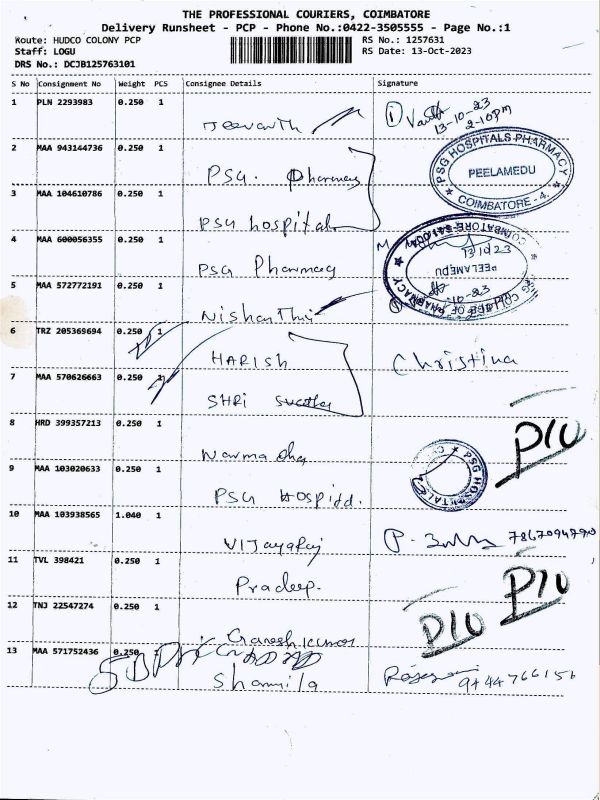 THE PROFESSIONAL COURIERS, COIMBATORE
Delivery Runsheet - PCP - Phone No.:0422-3505555 - Page No.:1
Route: HUDCO COLONY PCP
RS No.: 1257631
Staff: LOGU
RS Date: 13-Oct-2023
DRS No.: DCJB125763101
S No Consignment No Weight PCS Consignee Details Signature
1 PLN 2293983 0.250 1
13-10-23
2-10pm
Jeevanth
2 MAA 943144736 0.250 1
PSG. Pharmacy
PSG HOSPITALS PHARMACY
PEELAMEDU
COIMBATORE - 4.
3 MAA 104610786 0.250 1
PSG hospital
4 MAA 600056355 0.250 1
PSG Pharmacy
13/10/23
PEELAMEDU
5 MAA 572772191 0.250 1
Nishanthi
6 TRZ 205369694 0.250 1
HARISH
Christina
7 MAA 570626663 0.250 1
SHRi
8 HRD 399357213 0.250 1
D10
Narmadha
9 MAA 103020633 0.250 1
PSG HOSPital.
PSG HOSPITALS
10 MAA 103938565 1.040 1
VIJayaRaj
P.
11 TVL 398421 0.250 1
Pradeep.
D10
12 TNJ 22547274 0.250 1
D10
Ganesh kumar
13 MAA 571752436 0.250
Sharmila